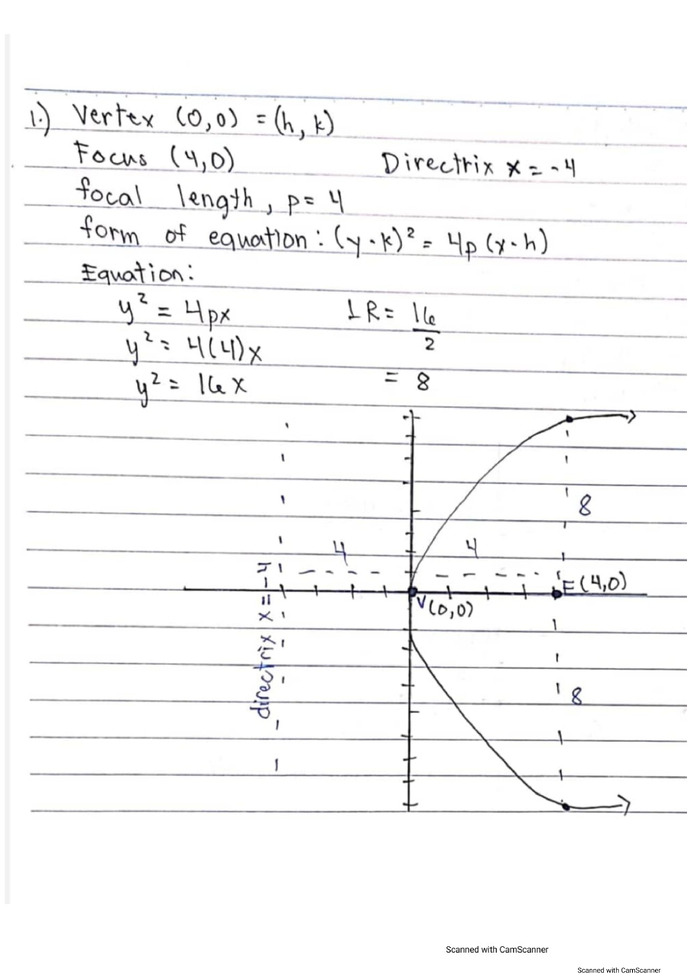 1.) Vertex (0,0) = (h, k)
Focus (4,0) Directrix x = -4
focal length, p= 4
form of equation: (y-k)² = 4p (x-h)
Equation:
y² = 4px LR = 16/2
y² = 4(4)x
y² = 16x = 8
8
4 4
F(4,0)
V(0,0)
directrix x = -4
8
Scanned with CamScanner
Scanned with CamScanner